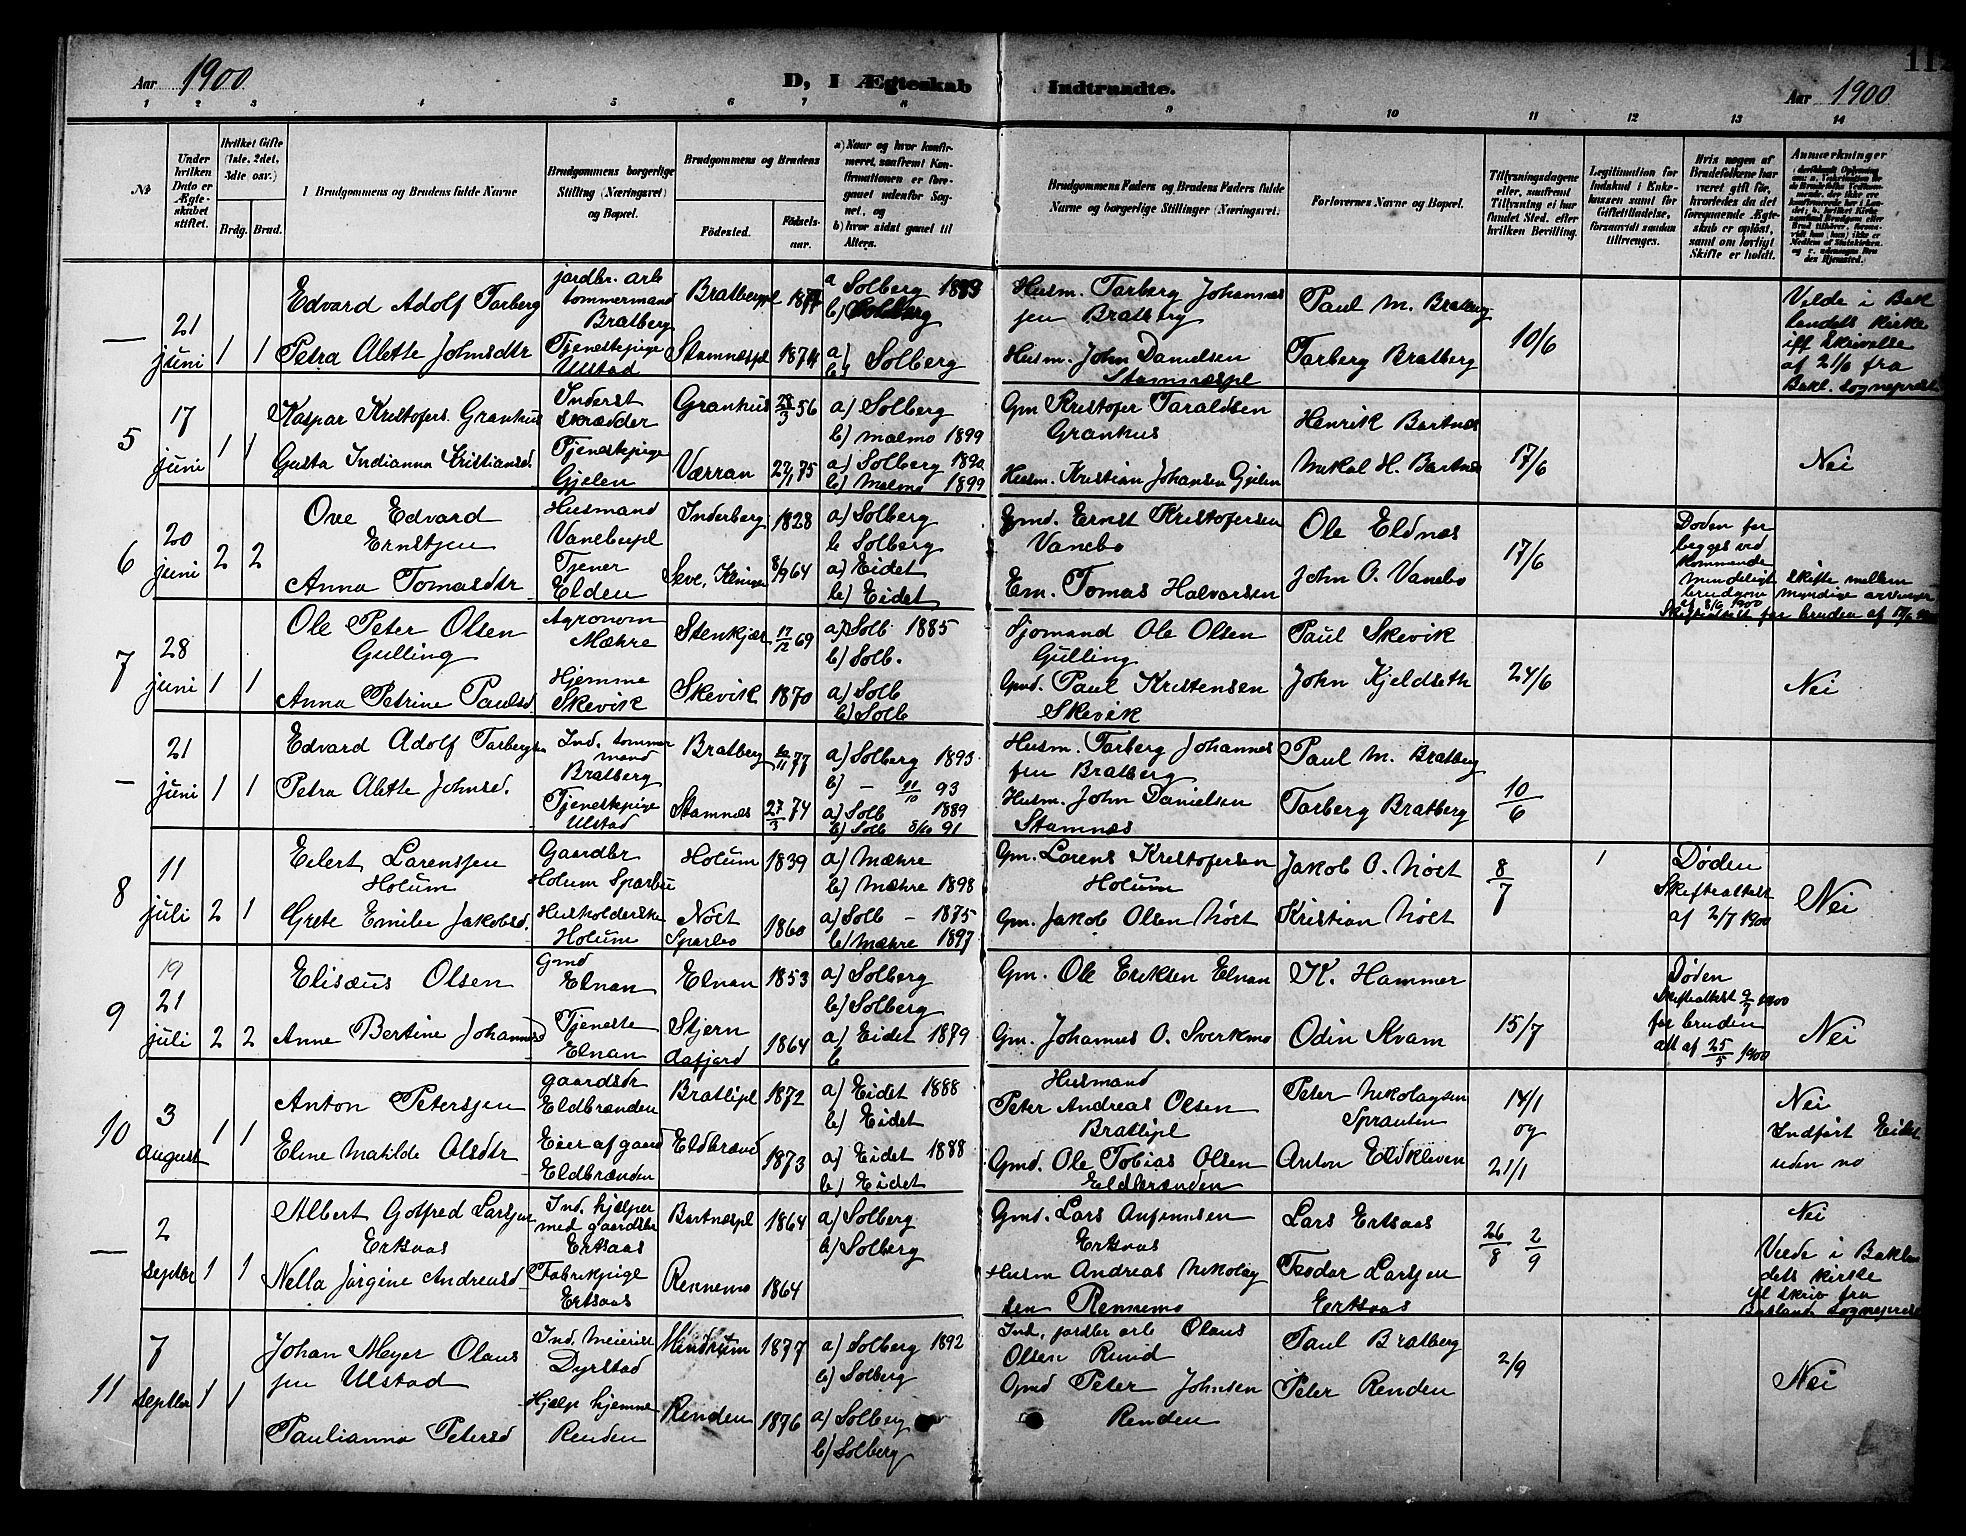 Aar 1900
D, I Ægteskab Indtraadte.
Aar 1900
1 2 3 4 5 6 7 8 9 10 11 12 13 14
No
Under hvilken Dato er Ægteskabet stiftet.
Hvilket Gifte (1ste, 2det, 3dte osv.)
Brdg. Brud.
Brudgommens og Brudens fulde Navne
Brudgommens borgerlige Stilling (Næringsvei) og Bopæl.
Brudgommens og Brudens
Fødested.
Fødselsaar.
a) Naar og hvor konfirmeret, saafremt Konfirmationen er foregaaet udenfor Sognet, og
b) hvor sidst gaaet til Alters.
Brudgommens Faders og Brudens Faders fulde Navne og borgerlige Stillinger (Næringsvei)
Forlovernes Navne og Bopæl.
Tillysningsdagene eller, saafremt Tillysning ei har fundet Sted, efter hvilken Bevilling.
Legitimation for Indskud i Enkekassen samt for Giftetilladelse, forsaavidt saadan tiltrænges.
Hvis nogen af Brudefolkene har været gift før, hvorledes da det foregaaende Ægteskab er opløst, samt om lovligt Skifte er holdt.
Anmærkninger
— 21 juni 1 1
Edvard Adolf Tarberg
jordbr. arb tommermand Bratberg
Bratbergpl 1877
a Solberg 1893
b) Solberg
Husm. Tarberg Johannessen Bratberg
Paul M. Bratberg
10/6
Petra Alette Johnsdtr
Tjenestepige Ulstad
Stamnæspl 1874
a) b) Solberg
Husm. John Danielsen Stamnæspl
Tarberg Bratberg
Viede i Baklandets kirke
iff Skrivelse
af 21/6 fra
Bakl. sogneprest
5 17 juni 1 1
Kaspar Kristofers. Granhus
Inderst skrædder
Granhus 28/3 56
a) Solberg
b) Malmo 1899
Gm Kristofer Taraldsen Granhus
Henrik Bartnes
17/6
Nei
Gusta Indianna Kristiansd.
Tjenestepige Gjelen
Værran 27/1 75
a) Solberg 1890
b) Malmo 1899
Husm. Kristian Johansen Gjelen
Mikal H. Bartnes
6 20 juni 2 2
Ove Edvard Ernstsen
Husmand Vanebopl
Inderberg 1828
a) Solberg
b Solberg
Gmd. Ernst Kristofersen Vanebo
Ole Eldnes
17/6
Døden for
begges ved
kommende
Mundtligt skifte mellem
brudgom myndige arvinger
af 8/6 1900
Skifteattest for bruden af 12/6
Anna Tomasdtr
Tjener Elden
Seve, Klinga 8/9 64
a) Eidet
b) Eidet
Em. Tomas Halvarsen
John O. Vanebo
7 28 juni 1 1
Ole Peter Olsen Gulling
Agronom Mæhre
Stenkjær 17/12 69
a) Solb 1885
b) Solb.
Sjomand Ole Olsen Gulling
Paul Skevik
24/6
Nei
Anna Petrine Paulsd
Hjemme Skevik
Skevik 1870
a) Solb
b) Solb
Gmd. Paul Kristensen Skevik
John Kjeldseth
— 21 juni 1 1
Edvard Adolf Tarbergsen
Ind. tommermand Bratberg
Bratberg 77
a) Solberg 1893
b) — 93
Husm. Tarberg Johannessen Bratberg
Paul M. Bratberg
10/6
Petra Alette Johnsd.
Tjenestepige Ulstad
Stamnæs 27/3 74
a) Solb 1889
b) Solb 8/10 91
Husm. John Danielsen Stamnæs
Tarberg Bratberg
8 11 juli 2 1
Eilert Larenssen Holum
Gaardbr Holum Sparbu
Holum 1839
a) Mæhre
b) Mæhre 1898
Gm. Lorens Kristofersen Holum
Jakob O. Nøst
8/7
1
Døden
Skifteattest
af 2/7 1900
Nei
Grete Emilie Jakobsd.
Husholderske Holum
Nøst Sparbo 1860
a) Solb — 1875
b) Mæhre 1897
Gm. Jakob Olsen Nøst
Kristian Nøst
9 19 21 juli 2 2
Elisæus Olsen
Gmd Elnan
Elnan 1853
a) Solberg
b) Solberg
Gm. Ole Eriksen Elnan
K. Hammer
15/7
Døden
Skifteattest 9/7 1900
for bruden
att af 25/5 1900
Nei
Anne Bertine Johannesd
Tjeneste Elnan
Stjern dafjord 1864
a) Eidet 1879
b
Gm. Johannes O. Sverkmo
Odin Kvam
10 3 August 1 1
Anton Peterssen
gaardbr Eldbrænden
Bratlipl 1872
a) Eidet 1888
b) Eidet
Husmand Peter Andreas Olsen Bratlipl
Peter Nikolaysen Sprauten
14/1 og 21/1
Nei
Indført Eidet
uden no
Eline Matilde Olsdtr
Eier af gaard Eldbrænden
Eldbrænd 1873
a) Eidet 1888
b) Eidet
Gmd. Ole Tobias Olsen Eldbrænden
Anton Eldkleven
— 2 Septbr 1 1
Albert Gotfred Larssen Ertsaas
Ind. hjælper med gaardsbr Ertsaas
Bartnespl 1864
a) Solberg
b) Solberg
Gmd. Lars Anfinnsen Ertsaas
Lars Ertsaas
26/8 2/9
Nei
Viede i Baklandets kirke
if skriv fra
Baklands Sogneprest
Nella Jørgine Andreasd
Fabrikpige Ertsaas
Rennemo 1864
Husm Andreas Nikolaysen Rennemo
Teodor Larssen Ertsaas
11 7 Septbr 1 1
Johan Meyer Olaussen Ulstad
Ind. Meierist Dyrstad
Mindrum 1877
a) Solberg 1892
b) Solberg
Ind. jordbr arb Olaus Olsen Ruud
Paul Bratberg
2/9
Nei
Paulianna Petersd
Hjælp hjemme Renden
Renden 1876
a) Solberg
b) Solberg
Gmd Peter Johnsen Renden
Peter Renden